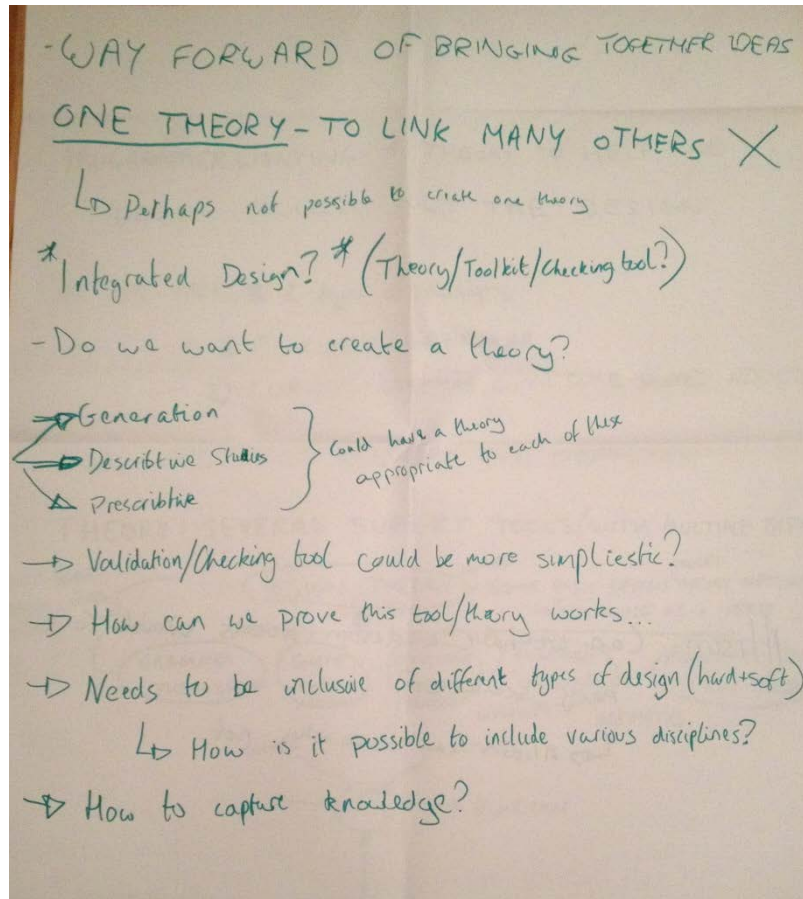 - WAY FORWARD OF BRINGING TOGETHER IDEAS
ONE THEORY - TO LINK MANY OTHERS X
↳ Perhaps not possible to create one theory
*Integrated Design?* (Theory/Toolkit/Checking tool?)
- Do we want to create a theory?
→ Generation
→ Describtive Studies
→ Prescribtive
} Could have a theory
appropriate to each of these
→ Validation/Checking tool could be more simpliestic?
→ How can we prove this tool/theory works...
→ Needs to be inclusive of different types of design (hard+soft)
↳ How is it possible to include various disciplines?
→ How to capture knowledge?